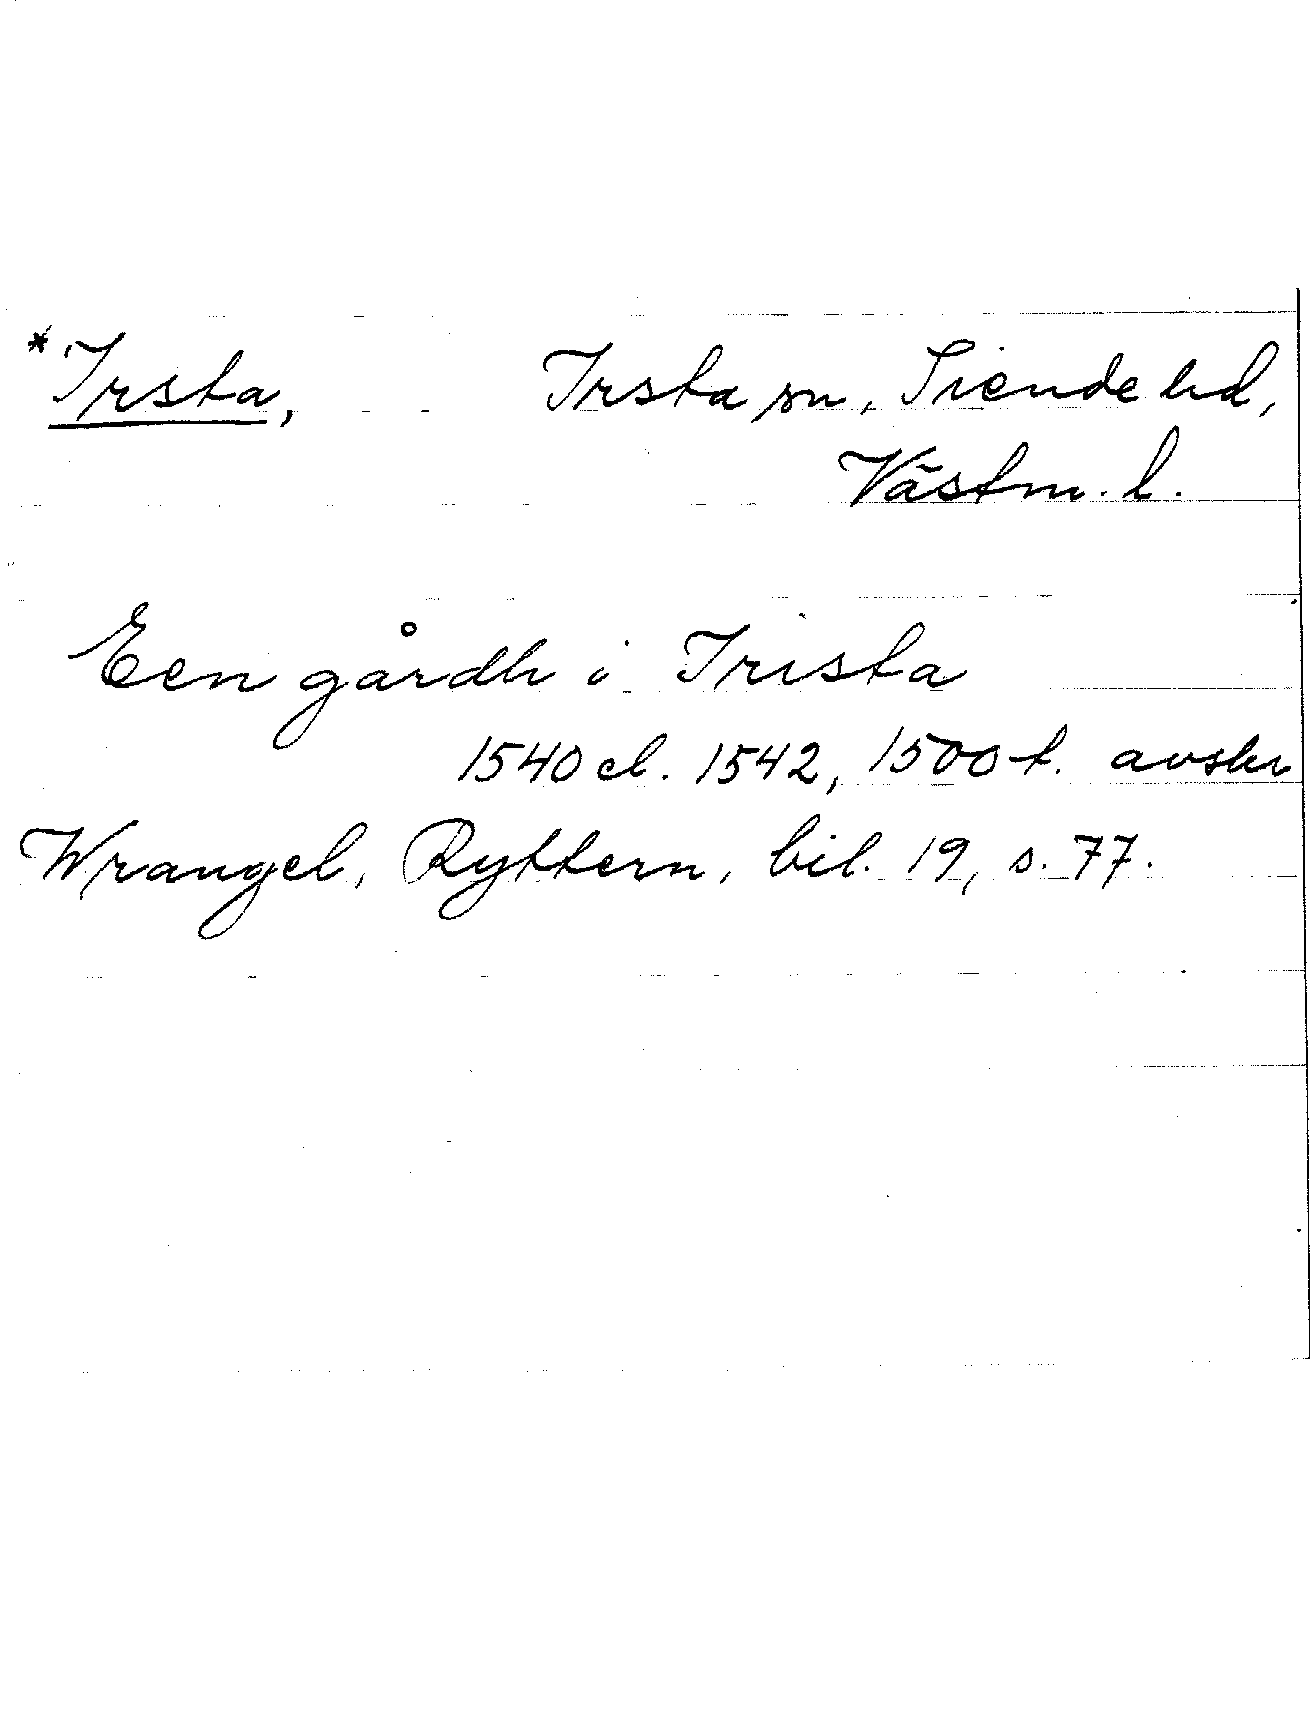 *Irsta, Irsta sn, Siende hd,
Västm. l.
Een gårdh i Irista
1540 el. 1542, 1500-t. avskr
Wrangel, Ryttern, bil. 19, s. 77.